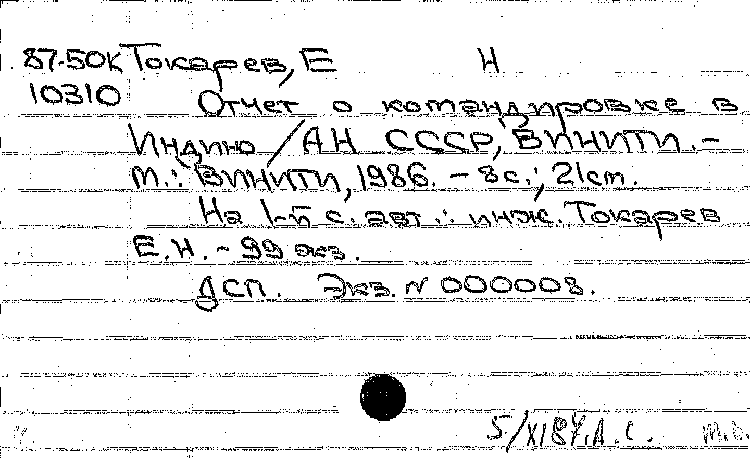 87-50К Токарев, Е Н
10310 Отчет о командировке в
Индию / АН СССР, ВИНИТИ. -
М.: ВИНИТИ, 1986. - 8 с.; 21 см.
На 1-й с. авт.: инж. Токарев
Е.Н. - 99 экз.
ДСП. Экз. N 000008.
5/XI87. А.С.